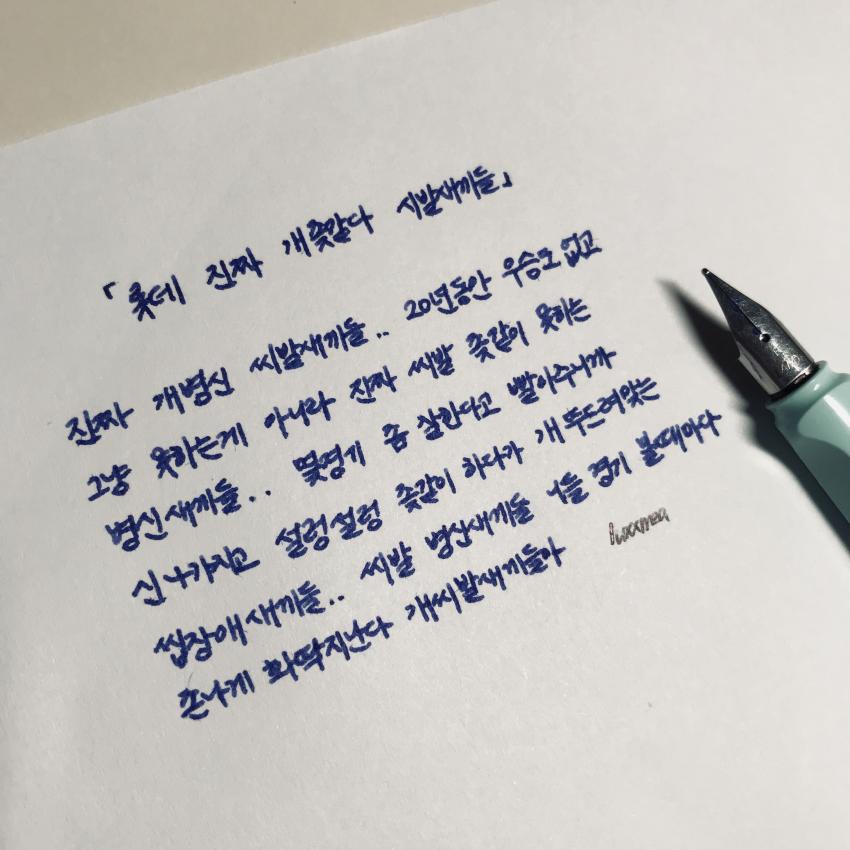 「롯데 진짜 개좆같다 시발새끼들」
진짜 개병신 씨발새끼들.. 20년동안 우승도 없고
그냥 못하는게 아니라 진짜 씨발 좆같이 못하는
병신새끼들.. 몇경기 좀 잘한다고 빨아주니까
신나가지고 설렁설렁 좆같이 하다가 개뚜드려맞는
씹장애새끼들.. 씨발 병신새끼들 니들 경기 볼때마다
존나게 화딱지난다 개씨발새끼들아